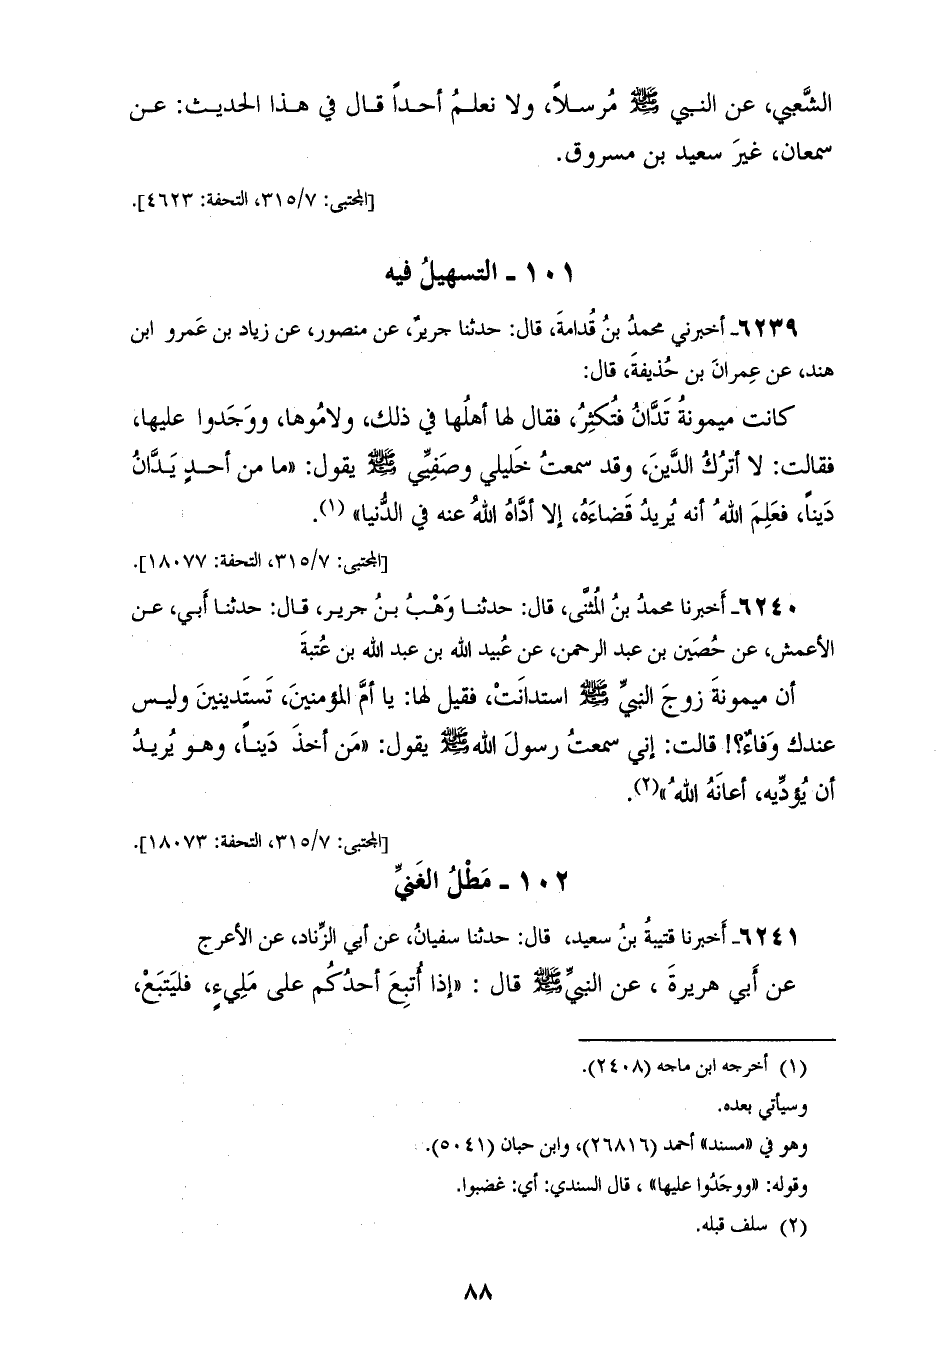 الشَّعبي، عن النبي ﷺ مُرسلاً، ولا نعلمُ أحداً قال في هذا الحديث: عن
سمعان، غيرَ سعيد بن مسروق.
[المجتبى: ٣١٥/٧، التحفة: ٤٦٢٣].
١٠١ - التسهيلُ فيه
٦٢٣٩ـ أخبرني محمدُ بنُ قُدامةَ، قال: حدثنا جريرٌ، عن منصور، عن زياد بن عَمرو ابن
هند، عن عِمرانَ بن حُذيفةَ، قال:
كانت ميمونةُ تَدَّانُ فتُكثِرُ، فقال لها أهلُها في ذلك، ولامُوها، ووَجَدوا عليها،
فقالت: لا أترُكُ الدَّينَ، وقد سمعتُ خَليلي وصَفِيِّي ﷺ يقول: «ما من أحدٍ يَدَّانُ
دَيناً، فعَلِمَ اللهُ أنه يُريدُ قَضاءَهُ، إلا أدَّاهُ اللهُ عنه في الدُّنيا» (١).
[المجتبى: ٣١٥/٧، التحفة: ١٨٠٧٧].
٦٢٤٠ـ أَخبرنا محمدُ بنُ المُثنَّى، قال: حدثنا وَهْبُ بنُ جرير، قال: حدثنا أَبي، عن
الأعمش، عن حُصَين بن عبد الرحمن، عن عُبيد الله بن عبد الله بن عُتبةَ
أن ميمونةَ زوجَ النبيِّ ﷺ استدانَتْ، فقيل لها: يا أمَّ المؤمنينَ، تَستَدينينَ وليس
عندك وَفاءٌ؟! قالت: إني سمعتُ رسولَ الله ﷺ يقول: «مَن أخذَ دَيناً، وهو يُريدُ
أن يُؤدِّيه، أعانَهُ اللهُ»(٢).
[المجتبى: ٣١٥/٧، التحفة: ١٨٠٧٣].
١٠٢ - مَطْلُ الغَنيِّ
٦٢٤١ـ أَخبرنا قتيبةُ بنُ سعيد، قال: حدثنا سفيانُ، عن أبي الزِّناد، عن الأعرج
عن أَبي هريرةَ ، عن النبيِّ ﷺ قال : «إذا أُتبِعَ أحدُكُم على مَلِيءٍ، فليَتبَعْ،
(١) أخرجه ابن ماجه (٢٤٠٨).
وسيأتي بعده.
وهو في «مسند» أحمد (٢٦٨١٦)، وابن حبان (٥٠٤١).
وقوله: «ووجَدُوا عليها» ، قال السندي: أي: غضبوا.
(٢) سلف قبله.
٨٨